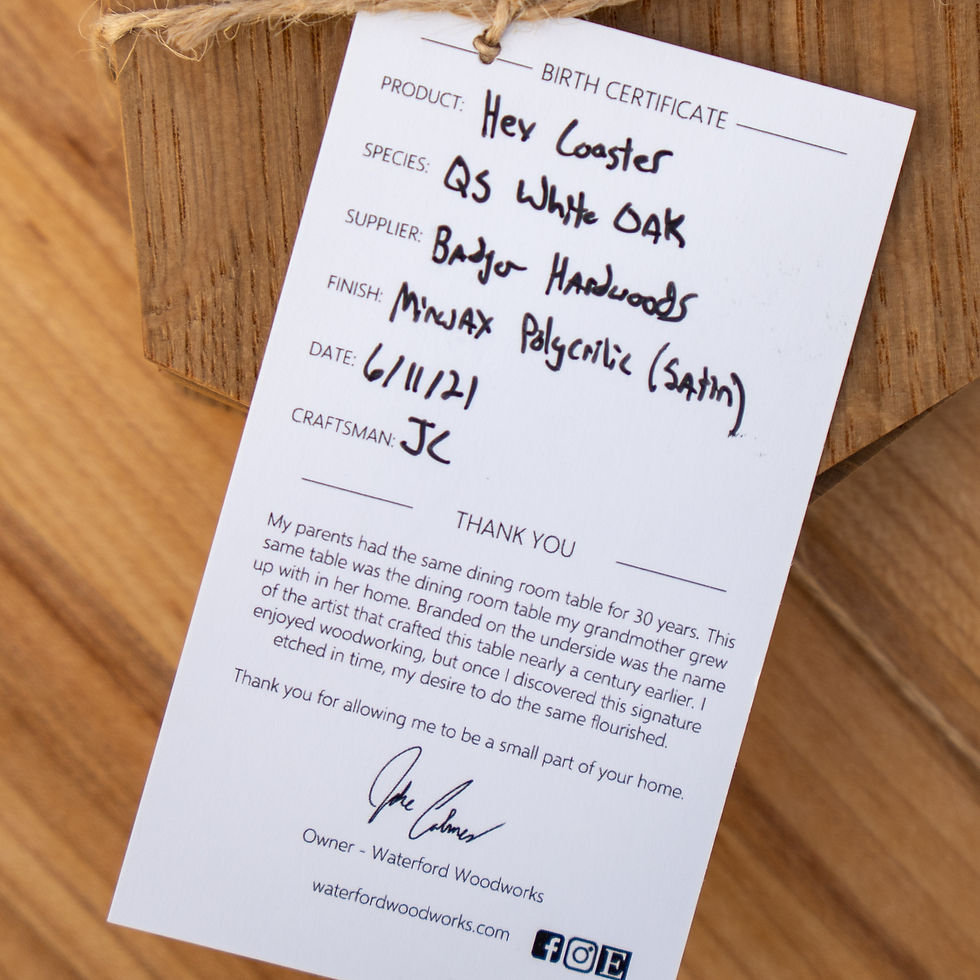 BIRTH CERTIFICATE
PRODUCT: Hex Coaster
SPECIES: QS White OAK
SUPPLIER: Badger Hardwoods
FINISH: Minwax Polycrilic (Satin)
DATE: 6/11/21
CRAFTSMAN: JC
THANK YOU
My parents had the same dining room table for 30 years. This
same table was the dining room table my grandmother grew
up with in her home. Branded on the underside was the name
of the artist that crafted this table nearly a century earlier. I
enjoyed woodworking, but once I discovered this signature
etched in time, my desire to do the same flourished.
Thank you for allowing me to be a small part of your home.
Owner - Waterford Woodworks
waterfordwoodworks.com
f E